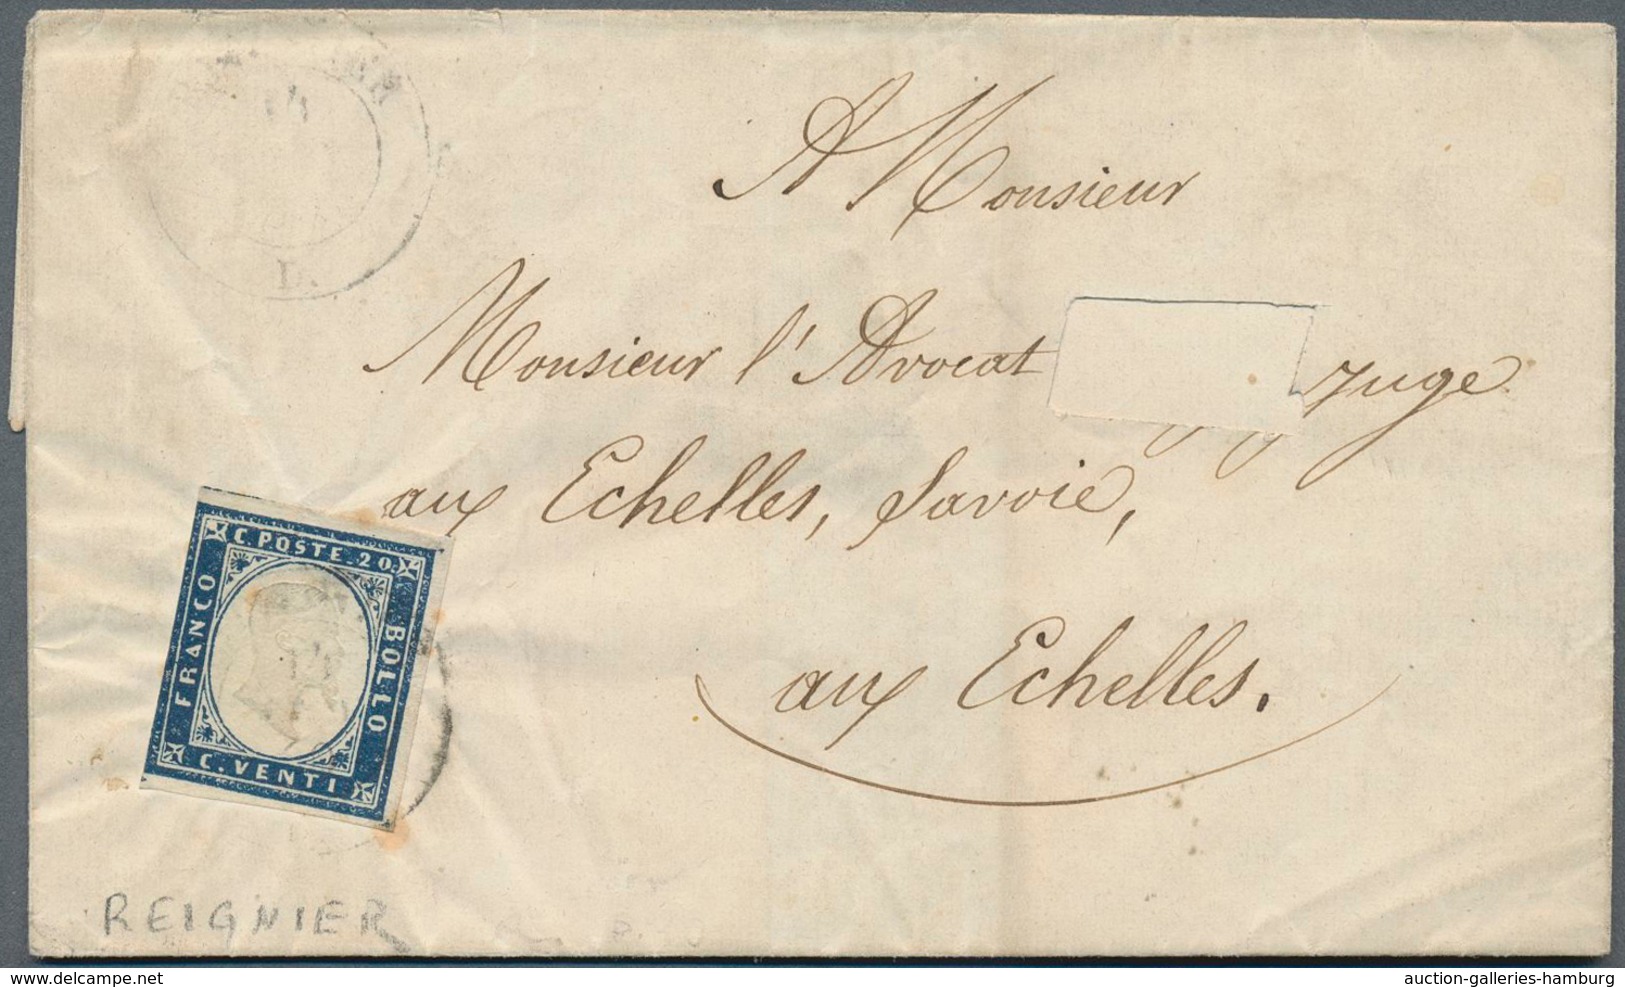 A Monsieur
Monsieur l'Avocat Juge
aux Echelles, Savoie,
aux Echelles.
C. POSTE. 20.
FRANCO
BOLLO
C. VENTI
14
D.
REIGNIER
delcampe.net
auction-galleries-hamburg